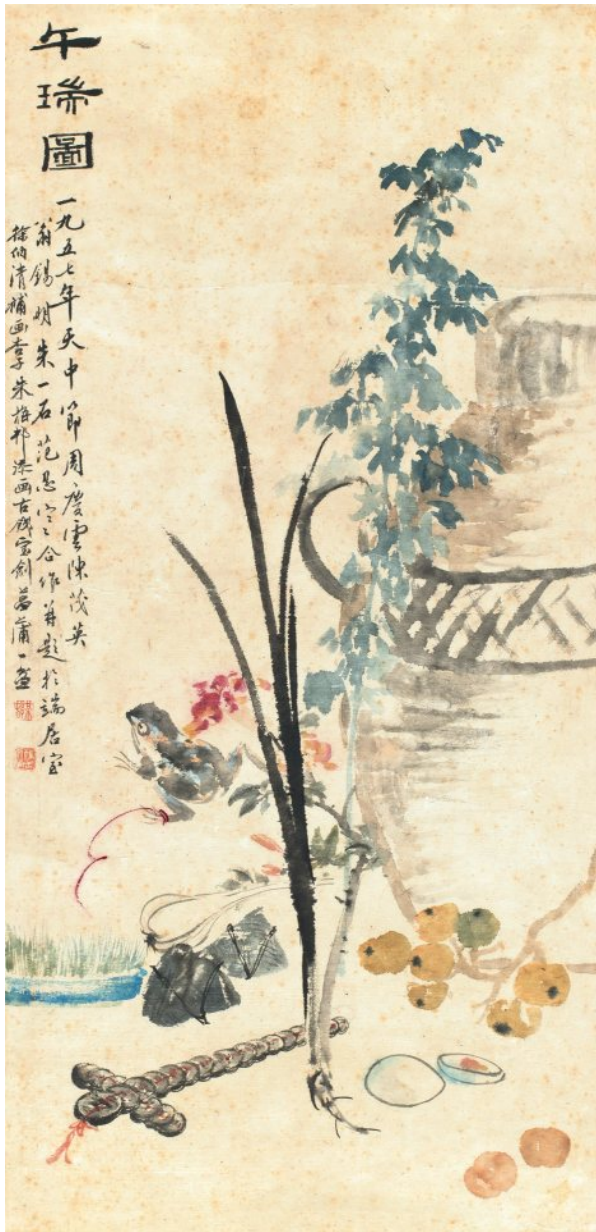 午瑞圖
一九五七年天中節周慶雲陳茂英
翁錫明朱一石范思宁合作并題於端居室
徐伯清補画李子朱梅邨添画古錢宝劍菖蒲一盆